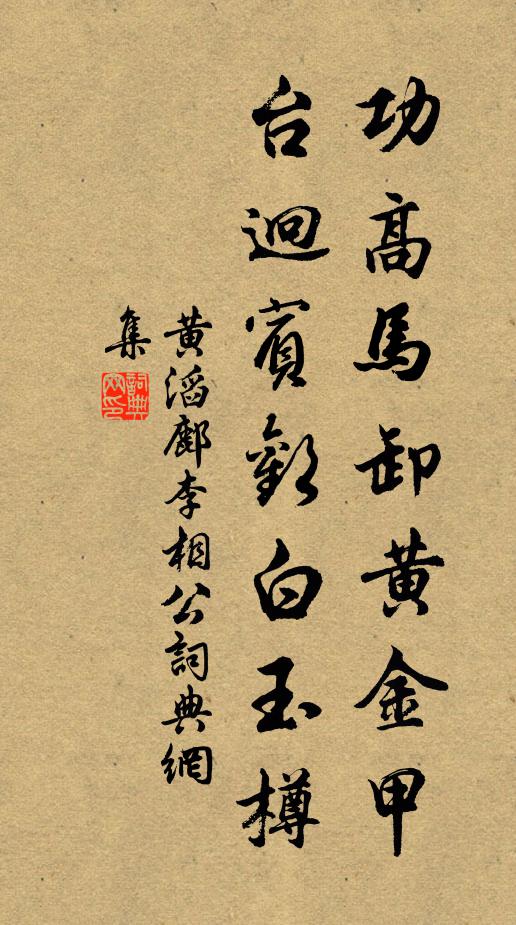 功高馬卸黃金甲
台迥賓歡白玉樽
黃滔鄜李相公詞典網
集
詞典網印